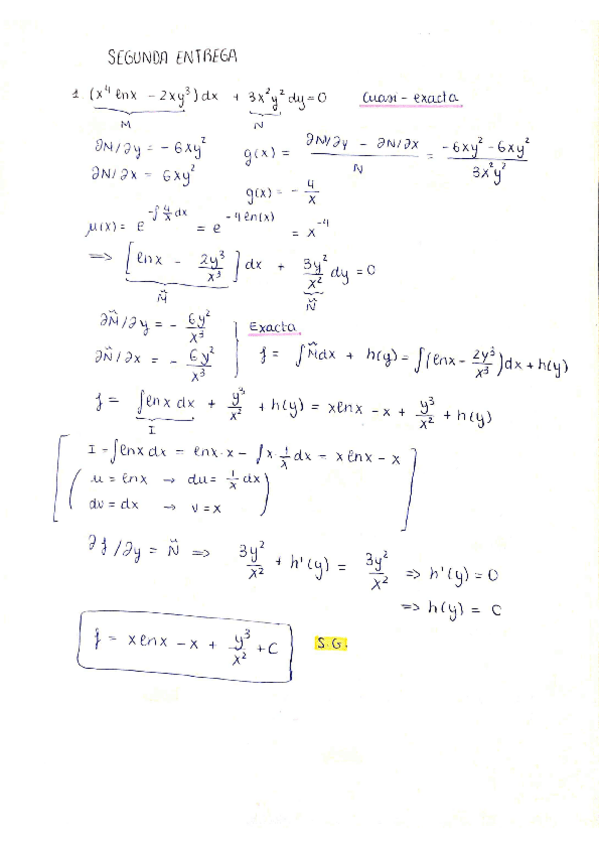 SEGUNDA ENTREGA
1 (x⁴ lnx - 2xy³)dx + 3x²y² dy = 0 Cuasi-exacta
M N
∂M/∂y = - 6xy² g(x) = (∂M/∂y - ∂N/∂x)/N = (-6xy² - 6xy²)/(3x²y²)
∂N/∂x = 6xy²
g(x) = - 4/x
μ(x) = e^(-∫ 4/x dx) = e^(-4 ln(x)) = x⁻⁴
=> [lnx - 2y³/x³] dx + 3y²/x² dy = 0
M̃ Ñ
∂M̃/∂y = - 6y²/x³ Exacta
∂Ñ/∂x = - 6y²/x³ f = ∫M̃dx + h(y) = ∫(lnx - 2y³/x³)dx + h(y)
f = ∫lnx dx + y³/x² + h(y) = xlnx - x + y³/x² + h(y)
I
I = ∫lnx dx = lnx·x - ∫x·1/x dx = xlnx - x
u = lnx → du = 1/x dx
dv = dx → v = x
∂f/∂y = Ñ => 3y²/x² + h'(y) = 3y²/x² => h'(y) = 0
=> h(y) = C
f = xlnx - x + y³/x² + C S.G.